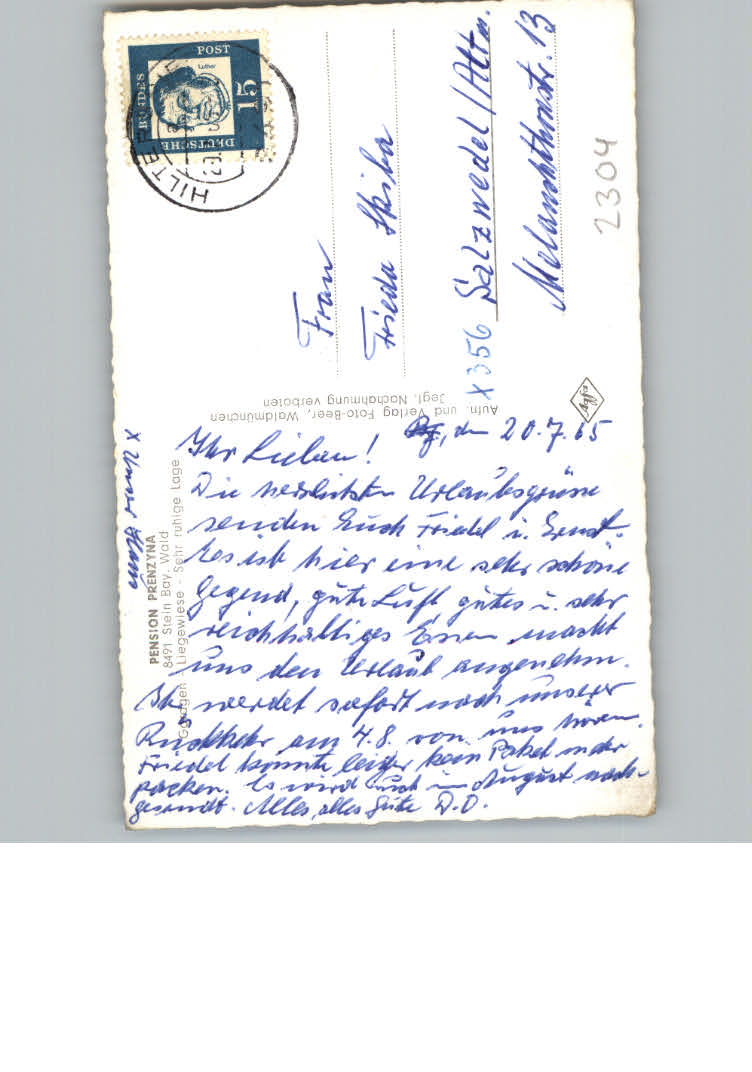 DEUTSCHE
BUNDES
POST
15
Luther
HILTE
Frau
Frieda Skiba
X356 Salzwedel / Altm.
Melanchthonstr. 13
2304
Agfa
Aufn. und Verlag Foto-Beer, Waldmünchen
Jegl. Nachahmung verboten
PENSION PRENZYNA
8491 Stein Bay. Wald
Garagen - Liegewiese - Sehr ruhige Lage
, den 20.7.65
Ihr Lieben!
Die herzlichsten Urlaubsgrüsse
senden Euch Friedel u. Ernst.
Es ist hier eine sehr schöne
Gegend, gute Luft gutes u. sehr
reichhaltiges Essen macht
uns den Urlaub angenehm.
Ihr werdet sofort nach unserer
Rückkehr am 4.8. von uns hören.
Friedel konnte leider kein Paket mehr
packen. Es wird Euch im August nach-
gesandt. Alles, alles Gute D.O.